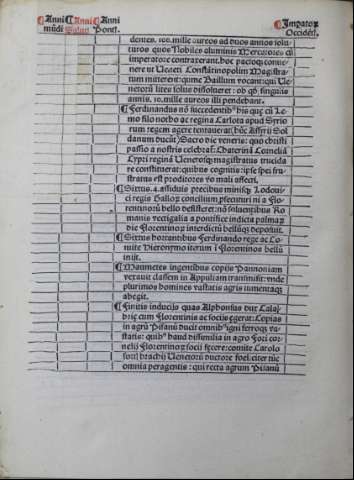 Anni mūdi
Anni Salutis
Anni Pont.
Imperatorꝝ Occidēt.
denten. 100. mille aureos ad duos annos
turos quos Nobiles aluminis Mercatores cū
imperatore contraxerant. hoc pacto
nere ut Veneti Constātinopolim Magistra-
tum mitterēt: quē Baillum vocant: qui Ve-
netorū lites solus dissolueret: ob qđ singulis
annis. 10. mille aureos illi pendebant.
¶ Ferdinandus nō succedentibus his quę cū Le-
mo filo notho ac regina Carlota apud Syrio
rum regem agere tentauerat (hūc Assyrii Sol
danum dicūt) Sacro die veneris: quo christi
passio a nostris celebrat̄: Chaterinā Cornelia
Cypri reginā Venetosqꝫ magistratus trucida
re constituerat: quibus cognitis: ipse spei fru-
stratus est proditores vō mali affecti.
¶ Sixtus. 4. assiduis precibus minisqꝫ Lodoui-
ci regis Galloꝝ concilium
rentinorū bello desisteret: nō soluentibus Ro
manis vectigalia a pontifice indicta palmaꝝ
die Florentinoꝝ interdictū bellūqꝫ deposuit.
¶ Sixtus hortantibus Ferdinando rege ac Co-
mite Hieronymo iterum ī Florentinos bellū
inijt.
¶ Maumetes ingentibus copijs Pannoniam
vexauit classem in Appuliam transmisit: vnde
plurimos homines vastatis agris iumentaqꝫ
abegit.
¶ Finitis inducijs quas Alphonsus dux Cala-
brię cum Florentinis ac socijs egerat: Copias
in agrū Pisanū ducit omnibus igni ferroqꝫ va-
statis: quibus haud dissimilia in agro Foro cor-
nelij Florentinoꝝ socij fecere: comite Carolo
fortī brachij Venetorū ductore
omnia peragentis: qui recta agrum Pisanū